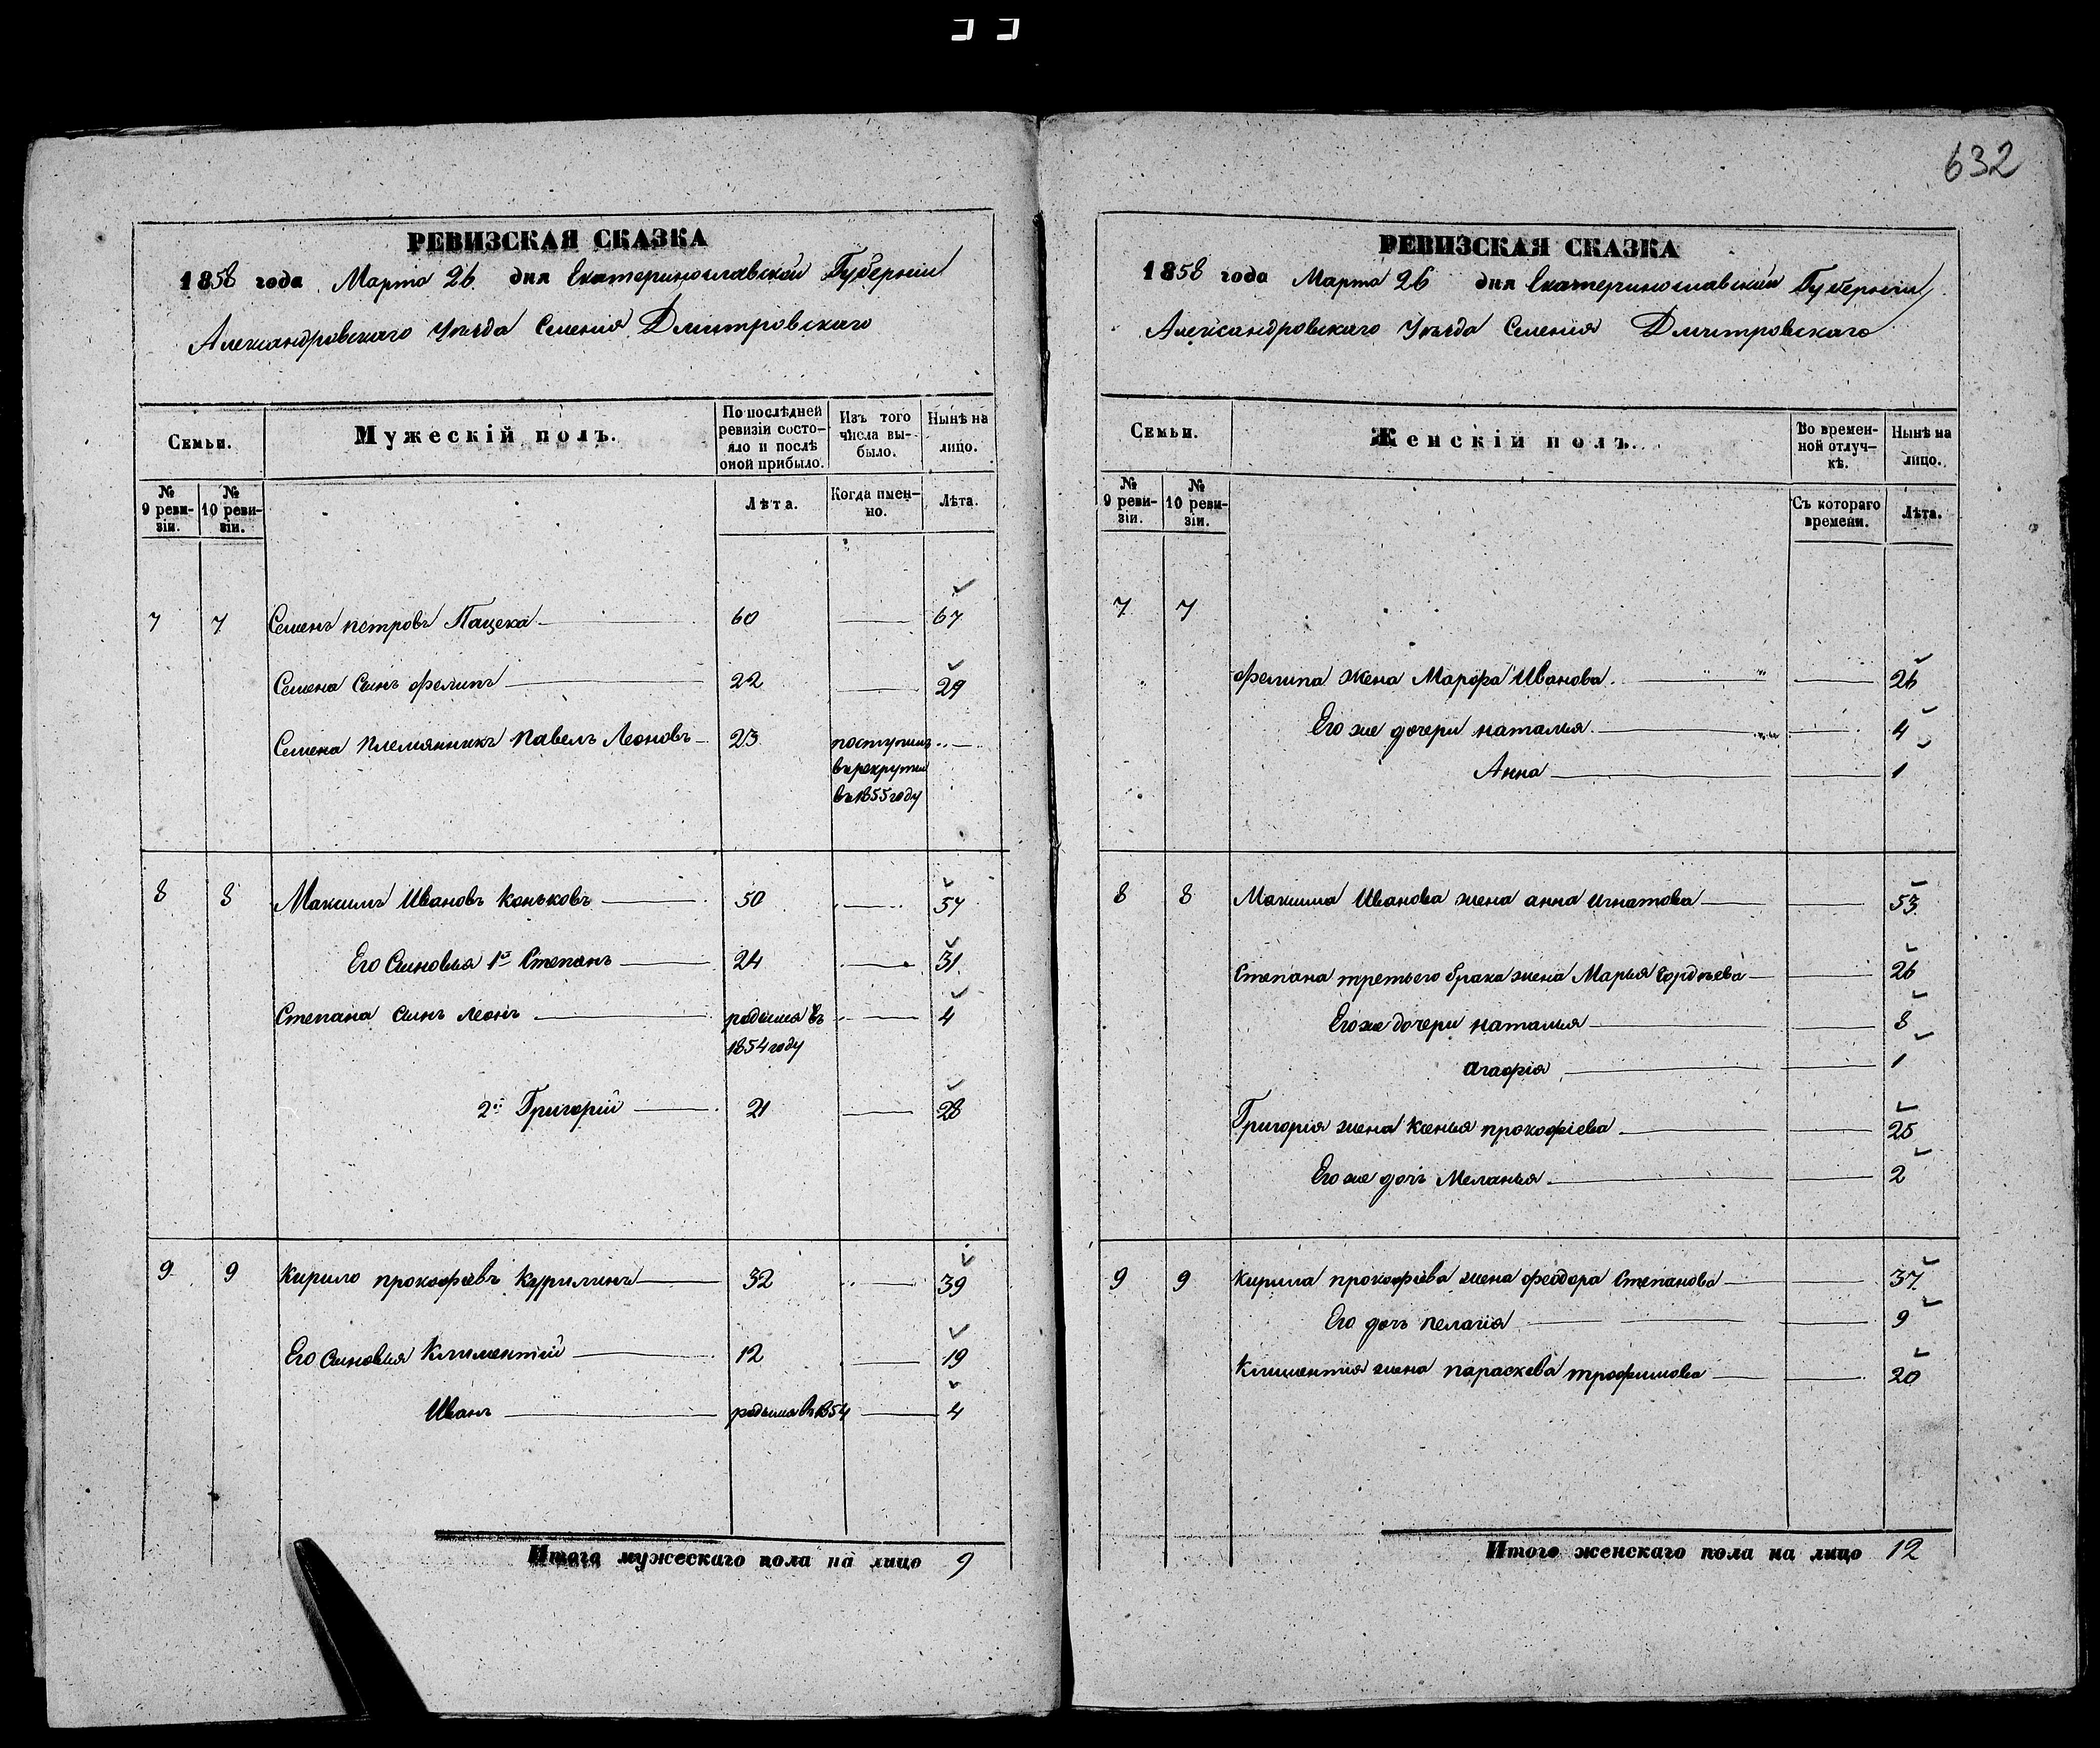 632
РЕВИЗСКАЯ СКАЗКА
1858 года Марта 26 дня Екатеринославской Губернiи
Александровскаго Уѣзда Селенiя Дмитровскаго
Семьи.
Мужескiй полъ.
По послѣдней ревизiи состояло и послѣ оной прибыло.
Изъ того числа выбыло.
Нынѣ на лицо.
№ 9 ревизiи.
№ 10 ревизiи.
Лѣта.
Когда именно.
Лѣта.
7 7 Семенъ петровъ Пацека 60 67
Семена Сынъ филипъ 22 29
Семена племянникъ павелъ Леоновъ 23 поступилъ
в рекруты
въ 1855 году
8 8 Максимъ Ивановъ Коньковъ 50 57
Его Сыновья 1й Степанъ 24 31
Степана Сынъ Леонъ родился въ 4
1854 году
2й Григорiй 21 28
9 9 Кирило прокофiевъ Курилинъ 32 39
Его Сыновья Климентiй 12 19
Иванъ родился въ 1854 4
Итого мужескаго пола на лицо 9
РЕВИЗСКАЯ СКАЗКА
1858 года Марта 26 дня Екатеринославской Губернiи
Александровскаго Уѣзда Селенiя Дмитровскаго
Семьи.
Женскiй полъ.
Во временной отлучкѣ.
Нынѣ на лицо.
№ 9 ревизiи.
№ 10 ревизiи.
Съ котораго времени.
Лѣта.
7 7
филипа жена Марфа Иванова 26
Его же дочери наталья 4
Анна 1
8 8 Максима Иванова жена анна игнатова 53
Степана третьего брака жена Марья Гордѣева 26
Его же дочери наталья 8
агафiя 1
Григорiя жена Ксенья прокофiева 25
Его же дочь Меланья 2
9 9 Кирила прокофiева жена феодора Степанова 37
Его дочь пелагiя 9
Климентiя жена параскева трофимова 20
Итого женскаго пола на лицо 12